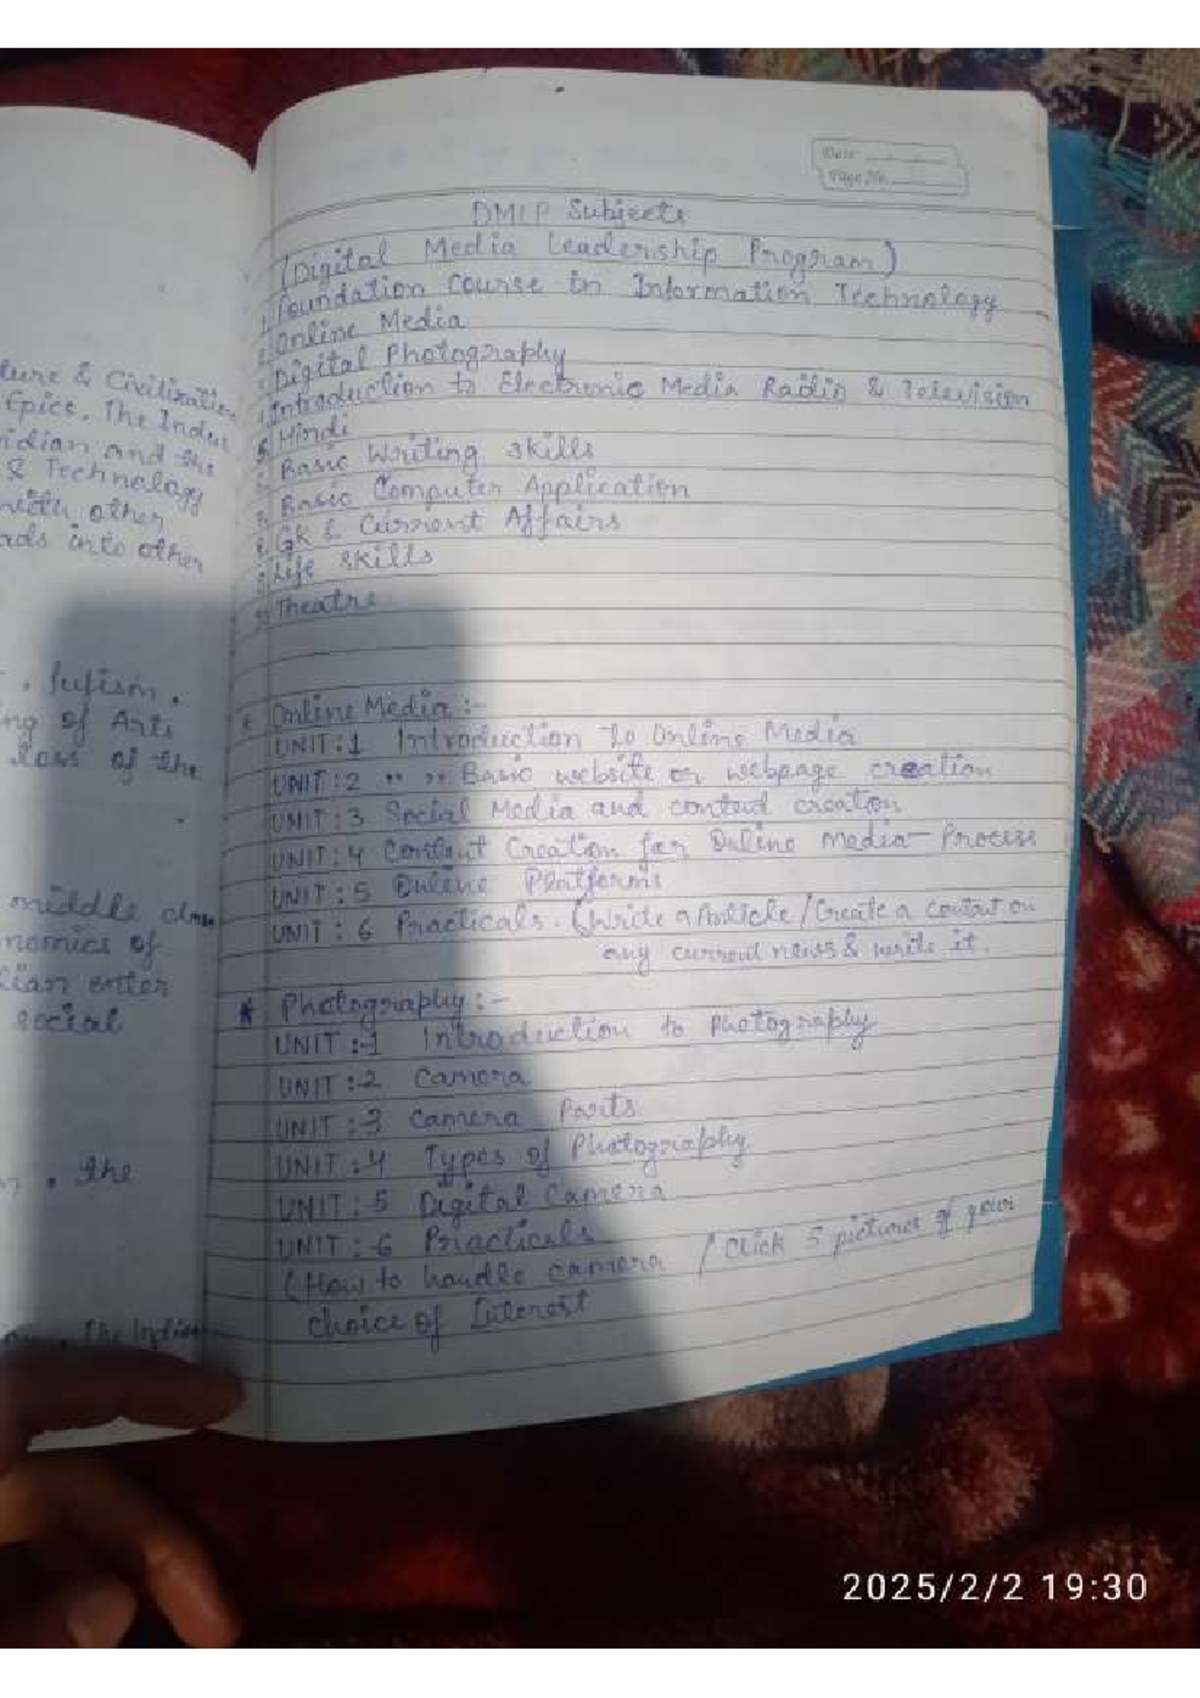 Date
Page No.
DMLP Subjects
(Digital Media Leadership Program)
1. Foundation Course in Information Technology
2. Online Media
3. Digital Photography
4. Introduction to Electronic Media Radio & Television
5. Hindi
6. Basic Writing skills
7. Basic Computer Application
8. GK & Current Affairs
9. Life skills
10. Theatre
* Online Media :-
UNIT : 1 Introduction to Online Media
UNIT : 2 " " Basic website or webpage creation
UNIT : 3 Social Media and content creation
UNIT : 4 Content Creation for Online Media - Process
UNIT : 5 Online Platforms
UNIT : 6 Practicals. (Write a Article / Create a content on
any current news & write it.
* Photography :-
UNIT :-1 Introduction to Photography
UNIT :-2 Camera
UNIT :-3 Camera Parts
UNIT :-4 Types of Photography
UNIT :-5 Digital Camera
UNIT :-6 Practicals
(How to handle camera / Click 5 pictures of your
choice of Interest
& Civilization
Epics. The Indus
and the
& Technology
with other
into other
, Sufism.
of Arts
loss of the
middle class
of
enter
social
. The
. The Indian
2025/2/2 19:30